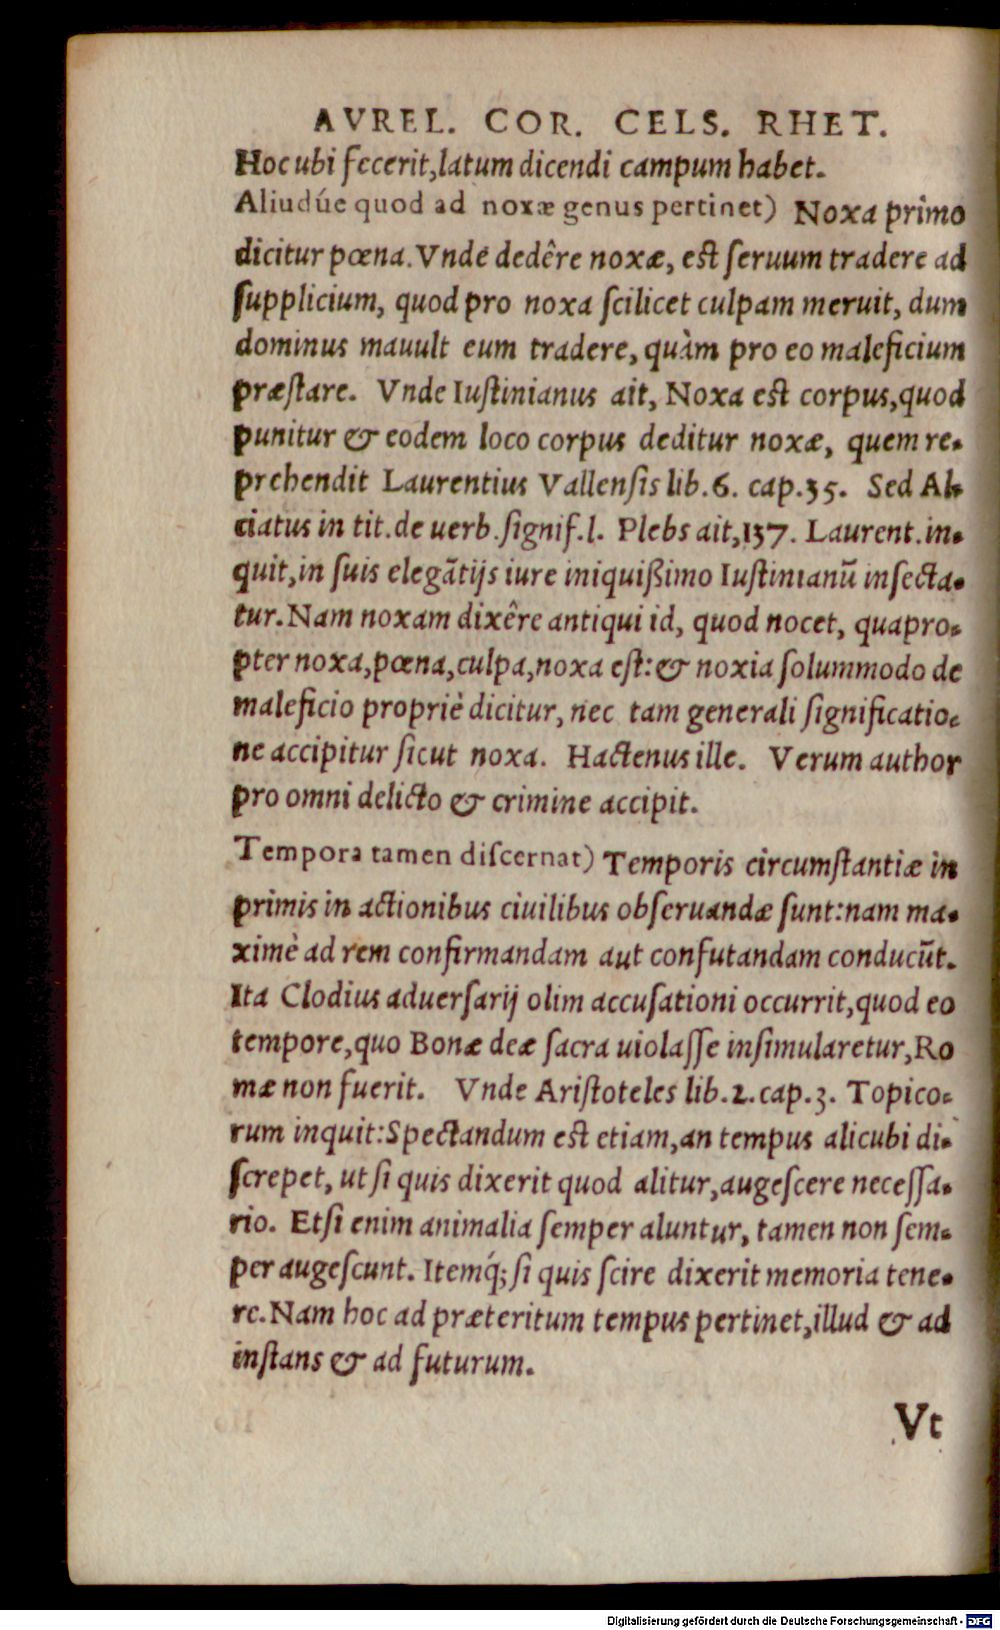 AVREL. COR. CELS. RHET.
Hoc ubi fecerit, latum dicendi campum habet.
Aliudúe quod ad noxæ genus pertinet) Noxa primo
dicitur pœna. Vnde dedêre noxæ, est ſeruum tradere ad
ſupplicium, quod pro noxa ſcilicet culpam meruit, dum
dominus mauult eum tradere, quàm pro eo maleficium
præſtare. Vnde Iuſtinianus ait, Noxa est corpus, quod
punitur & eodem loco corpus deditur noxæ, quem re-
prehendit Laurentius Vallenſis lib. 6. cap. 35. Sed Al-
ciatus in tit. de uerb. ſignif. l. Plebs ait, 137. Laurent. in-
quit, in ſuis elegãtijs iure iniquißimo Iuſtinianũ inſecta-
tur. Nam noxam dixêre antiqui id, quod nocet, quapro-
pter noxa, pœna, culpa, noxa eſt: & noxia ſolummodo de
maleficio propriè dicitur, nec tam generali ſignificatio-
ne accipitur ſicut noxa. Hactenus ille. Verum author
pro omni delicto & crimine accipit.
Tempora tamen diſcernat) Temporis circumſtantiæ in
primis in actionibus ciuilibus obſeruandæ ſunt: nam ma-
ximè ad rem confirmandam aut confutandam conducũt.
Ita Clodius aduerſarij olim accuſationi occurrit, quod eo
tempore, quo Bonæ deæ ſacra uiolaſſe inſimularetur, Ro
mæ non fuerit. Vnde Ariſtoteles lib. 2. cap. 3. Topico-
rum inquit: Spectandum est etiam, an tempus alicubi di-
ſcrepet, ut ſi quis dixerit quod alitur, augeſcere neceſſa-
rio. Etſi enim animalia ſemper aluntur, tamen non ſem-
per augeſcunt. Itemq́; ſi quis ſcire dixerit memoria tene-
re. Nam hoc ad præteritum tempus pertinet, illud & ad
inſtans & ad futurum.
Vt
Digitalisierung gefördert durch die Deutsche Forschungsgemeinschaft - DFG